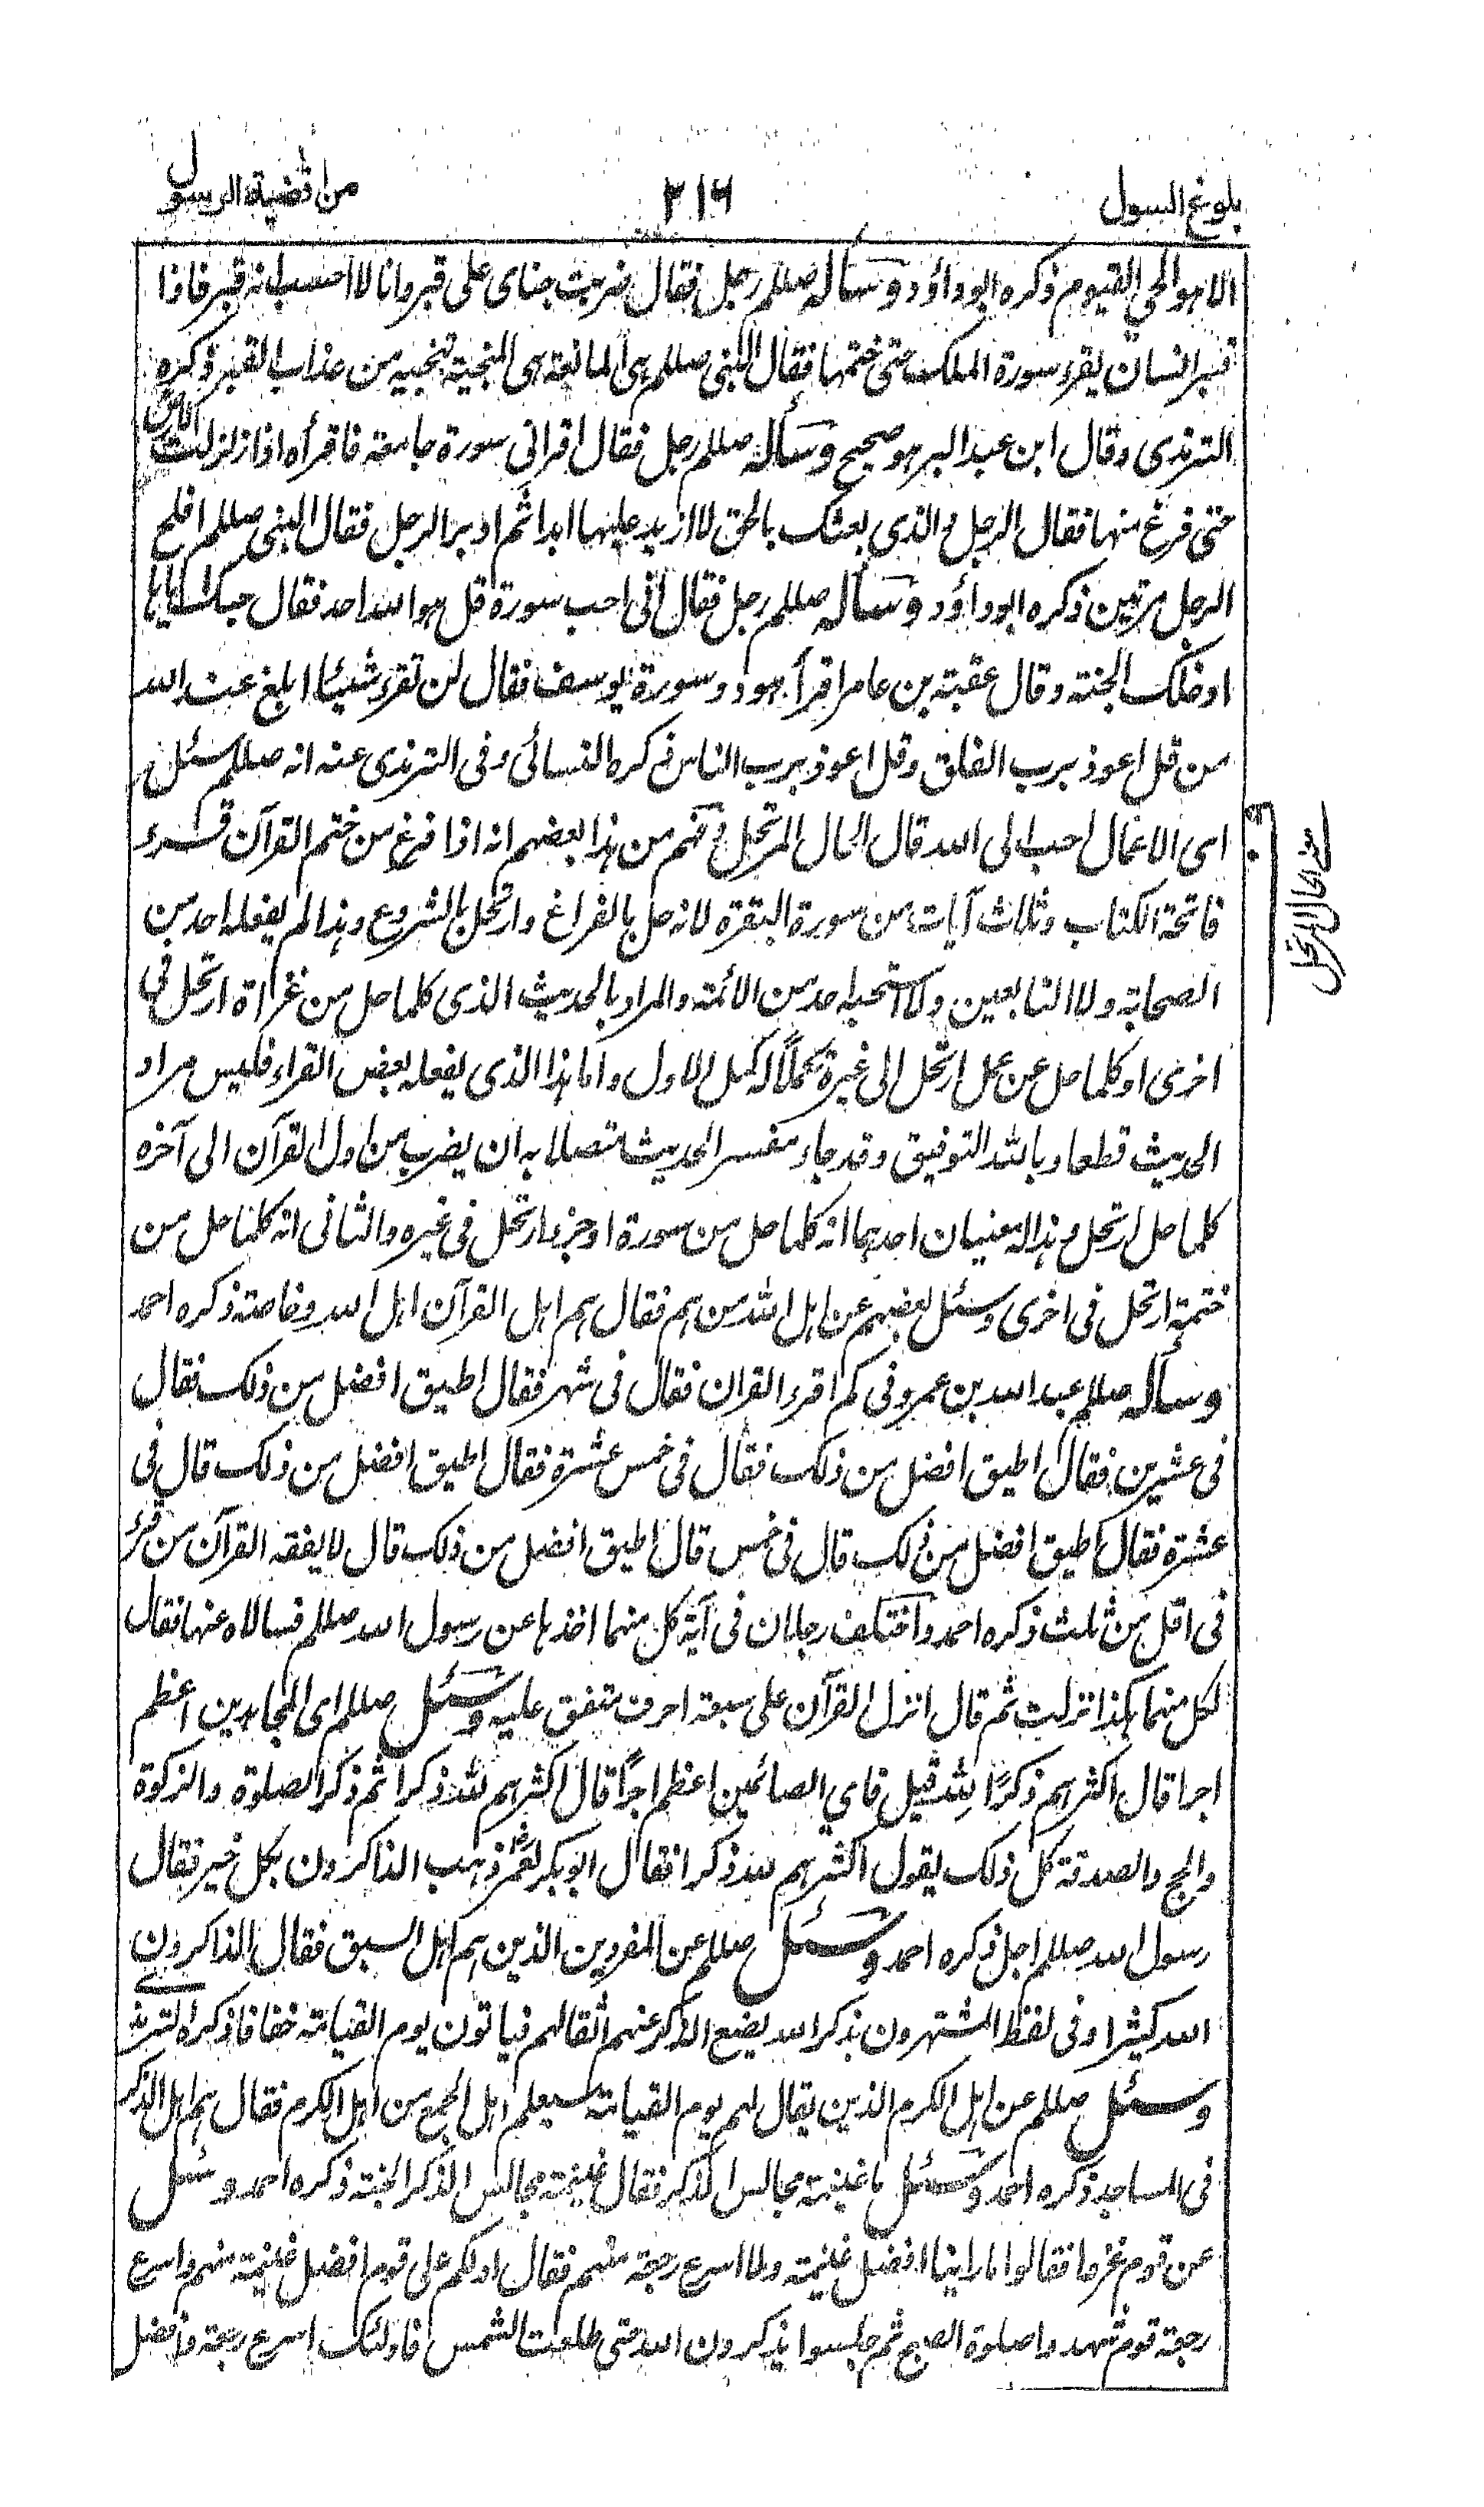 بلوغ السول
٢١٦
من اقضية الرسول
الا هو الحي القيوم ذكره ابو داؤد وسأله صللم رجل فقال ضربت خبائى على قبر وانا لا احسب انه قبر فاذا
قبر انسان يقرء سورة الملك حتى ختمها فقال النبى صللم هى المانعة هى المنجية تنجيه من عذاب القبر ذكره
الترمذى وقال ابن عبد البر هو صحيح وسأله صللم رجل فقال اقرانى سورة جامعة فاقرأه اذا زلزلت الارض
حتى فرغ منها فقال الرجل والذى بعثك بالحق لا ازيد عليها ابدا ثم ادبر الرجل فقال النبى صللم افلح
الرجل مرتين ذكره ابو داؤد وسأله صللم رجل فقال انى احب سورة قل هو الله احد فقال حبك اياها
ادخلك الجنة وقال عقبة بن عامر اقرأ بهود وسورة يوسف فقال لن تقرء شيئا ابلغ عند الله
من قل اعوذ برب الفلق وقل اعوذ برب الناس ذكره النسائى وفى الترمذى عنه انه صللم سئل
اى الاعمال احب الى الله قال الحال المرتحل وفهم من هذا بعضهم انه اذا فرغ من ختم القرآن قرء
فاتحة الكتاب وثلاث آيات من سورة البقرة لانه حل بالفراغ وارتحل بالشروع وهذا لم يفعله احد من
الصحابة ولا التابعين ولا استحبه احد من الائمة والمراد بالحديث الذى كلما حل من غزاة ارتحل فى
اخرى او كلما حل عن عمل ارتحل الى غيره تكملاً له كمل الاول واما هذا الذى يفعله بعض القراء فليس مراد
الحديث قطعا وبالله التوفيق وقد جاء مفسر الحديث متصلا به ان يضرب من اول القرآن الى آخره
كلما حل ارتحل وهذا له معنيان احدهما انه كلما حل من سورة او جزء ارتحل فى غيره والثانى انه كلما حل من
ختمة ارتحل فى اخرى وسئل بعضهم عن اهل الله من هم فقال هم اهل القرآن اهل الله وخاصته ذكره احمد
وسأله صللم عبد الله بن عمرو فى كم اقرء القران فقال فى شهر فقال اطيق افضل من ذلك فقال
فى عشرين فقال اطيق افضل من ذلك فقال فى خمس عشرة فقال اطيق افضل من ذلك قال فى
عشرة فقال اطيق افضل من ذلك قال فى خمس قال اطيق افضل من ذلك قال لا يفقه القرآن من قرء
فى اقل من ثلث ذكره احمد واختلف رجلان فى آية كل منهما اخذها عن رسول الله صللم فسالاه عنها فقال
لكل منهما هكذا نزلت ثم قال انزل القرآن على سبعة احرف متفق عليه وسئل صللم اى المجاهدين اعظم
اجرا قال اكثرهم ذكرًا لله قيل فاي الصائمين اعظم اجرًا قال اكثرهم لله ذكرا ثم ذكر الصلوة والزكوة
والحج والصدقة كل ذلك يقول اكثرهم لله ذكرا فقال ابو بكر لعمر ذهب الذاكرون بكل خير فقال
رسول الله صللم اجل ذكره احمد وسئل صللم عن المفردين الذين هم اهل السبق فقال الذاكرون
الله كثيرا وفى لفظ المشتهرون بذكر الله يضع الذكر عنهم اثقالهم فياتون يوم القيامة خفافا ذكره الترمذى
وسئل صللم عن اهل الكرم الذين يقال لهم يوم القيامة سيعلم اهل الجمع من اهل الكرم فقال هم اهل الذكر
فى المساجد ذكره احمد وسئل ما غنيمة مجالس الذكر فقال غنيمة مجالس الذكر الجنة ذكره احمد وسئل
عن قوم غزوا فقالوا ما راينا افضل غنيمة ولا اسرع رجعة منهم فقال ادلكم على قوم افضل غنيمة منهم واسرع
رجعة قوم شهدوا صلوة الصبح ثم جلسوا يذكرون الله حتى طلعت الشمس فاولئك اسرع رجعة وافضل
الحال المرتحل